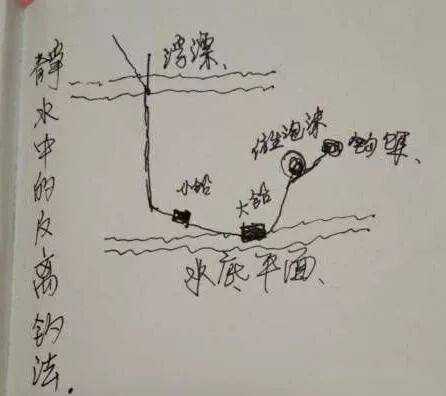 静水中的反离钓法.
浮漂、
小铅
大铅
泡沫
钩饵、
水底平面、